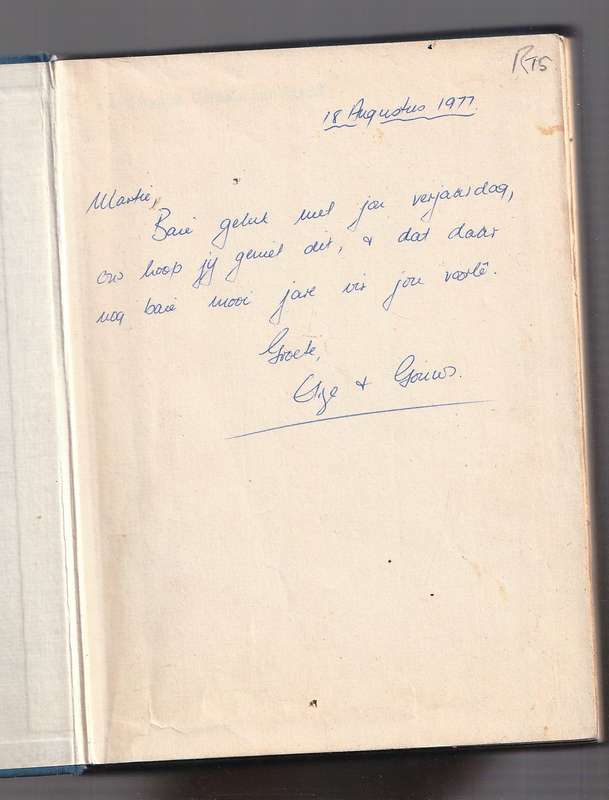 R75
18 Augustus 1977.
Martie,
Baie geluk met jou verjaardag,
ons hoop jy geniet dit, & dat daar
nog baie mooi jare vir jou voorlê.
Groete,
&